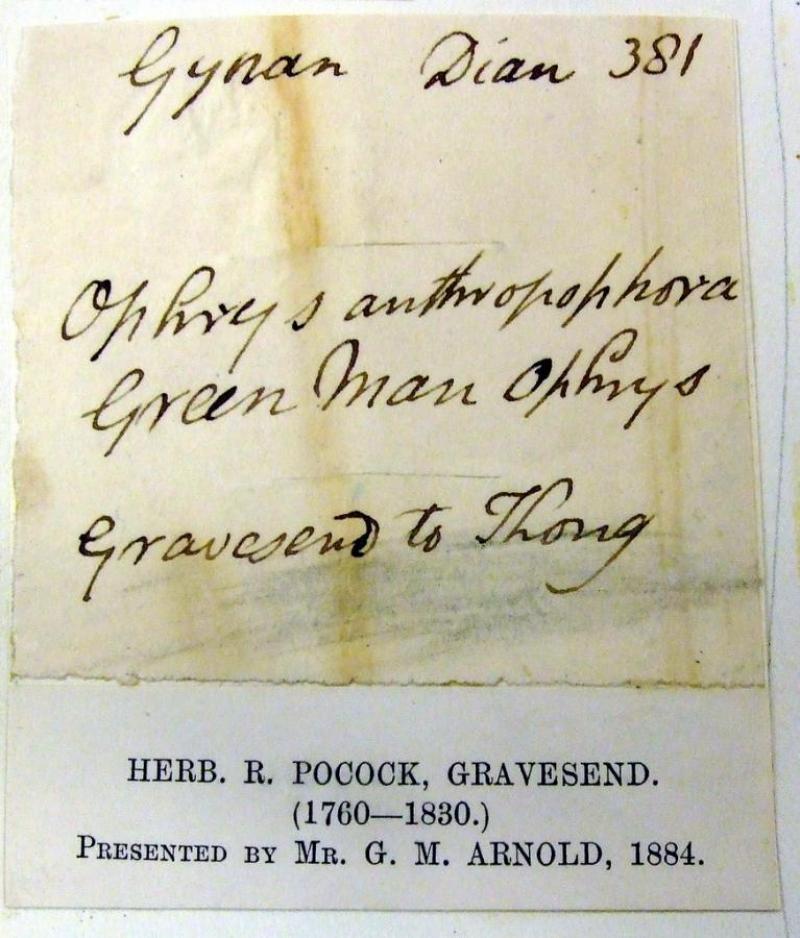 Gynan Dian 381
Ophrys anthropophora
Green Man Ophrys
Gravesend to Thong
HERB. R. POCOCK, GRAVESEND.
(1760—1830.)
PRESENTED BY MR. G. M. ARNOLD, 1884.